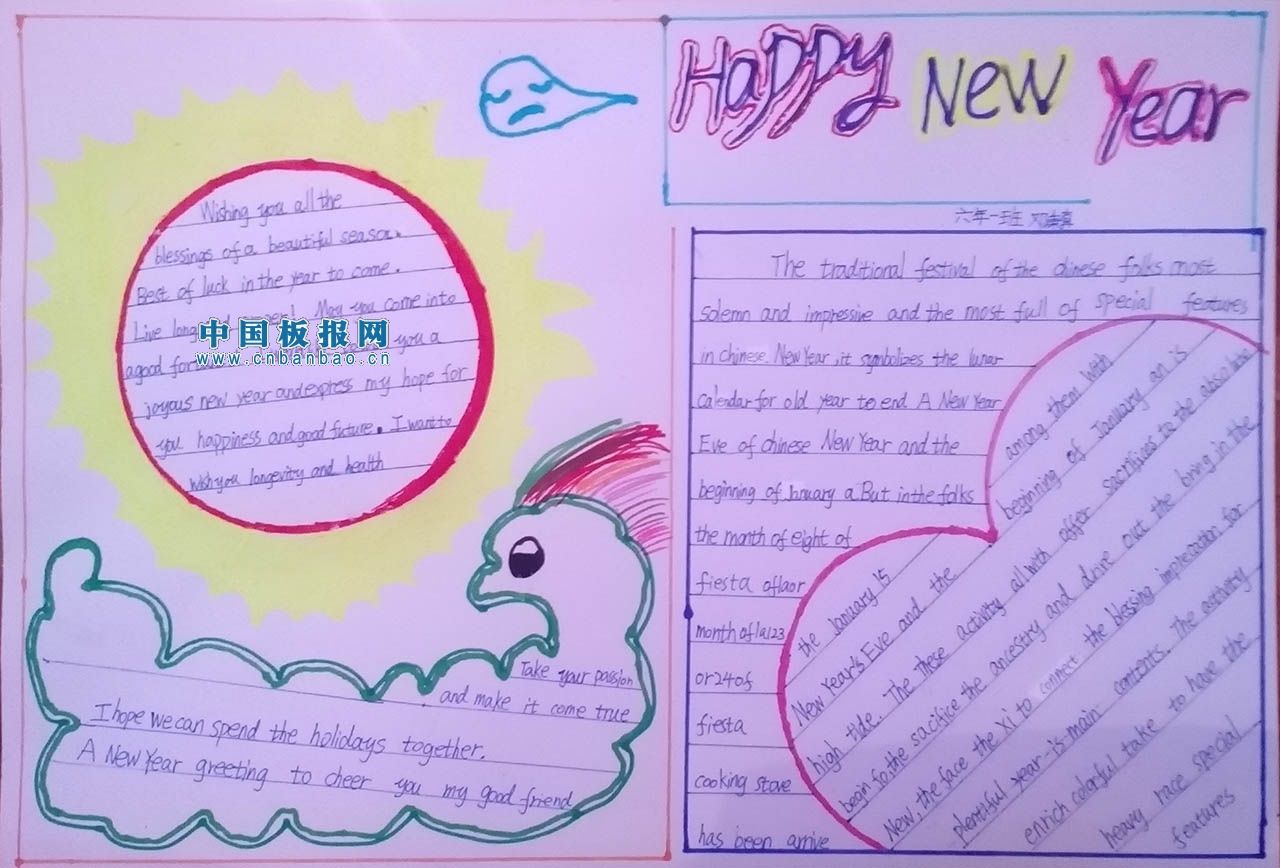 Happy New Year
六年一班
Wishing you all the
blessings of a beautiful season.
Best of luck in the year to come.
Live long May you come into
a good you a
joyous new year and express my hope for
you happiness and good future. I want to
wish you longevity and health
中国板报网
www.cnbanbao.cn
Take your passion
and make it come true
I hope we can spend the holidays together.
A New Year greeting to cheer you my good friend
The traditional festival of the chinese folks most
solemn and impressive and the most full of special features
in chinese New Year, it symbolizes the lunar
calendar for old year to end A New Year
Eve of chinese New Year and the
beginning of January a But in the folks
the month of eight of
fiesta oflaor
month of la123
or 24 of
fiesta
cooking stove
has been arrive
among them with
beginning of January an is
the January 15 sacrifices to the absolute
New Year's Eve and the
high tide. The These activity all with offer
begin to the sacifice the ancestry and drive out the bring in the
New, the face the XI to connect the blessing imprecation for
plentiful year-is-main contents. The activity
enrich colorful take to have the
heavy race special
features